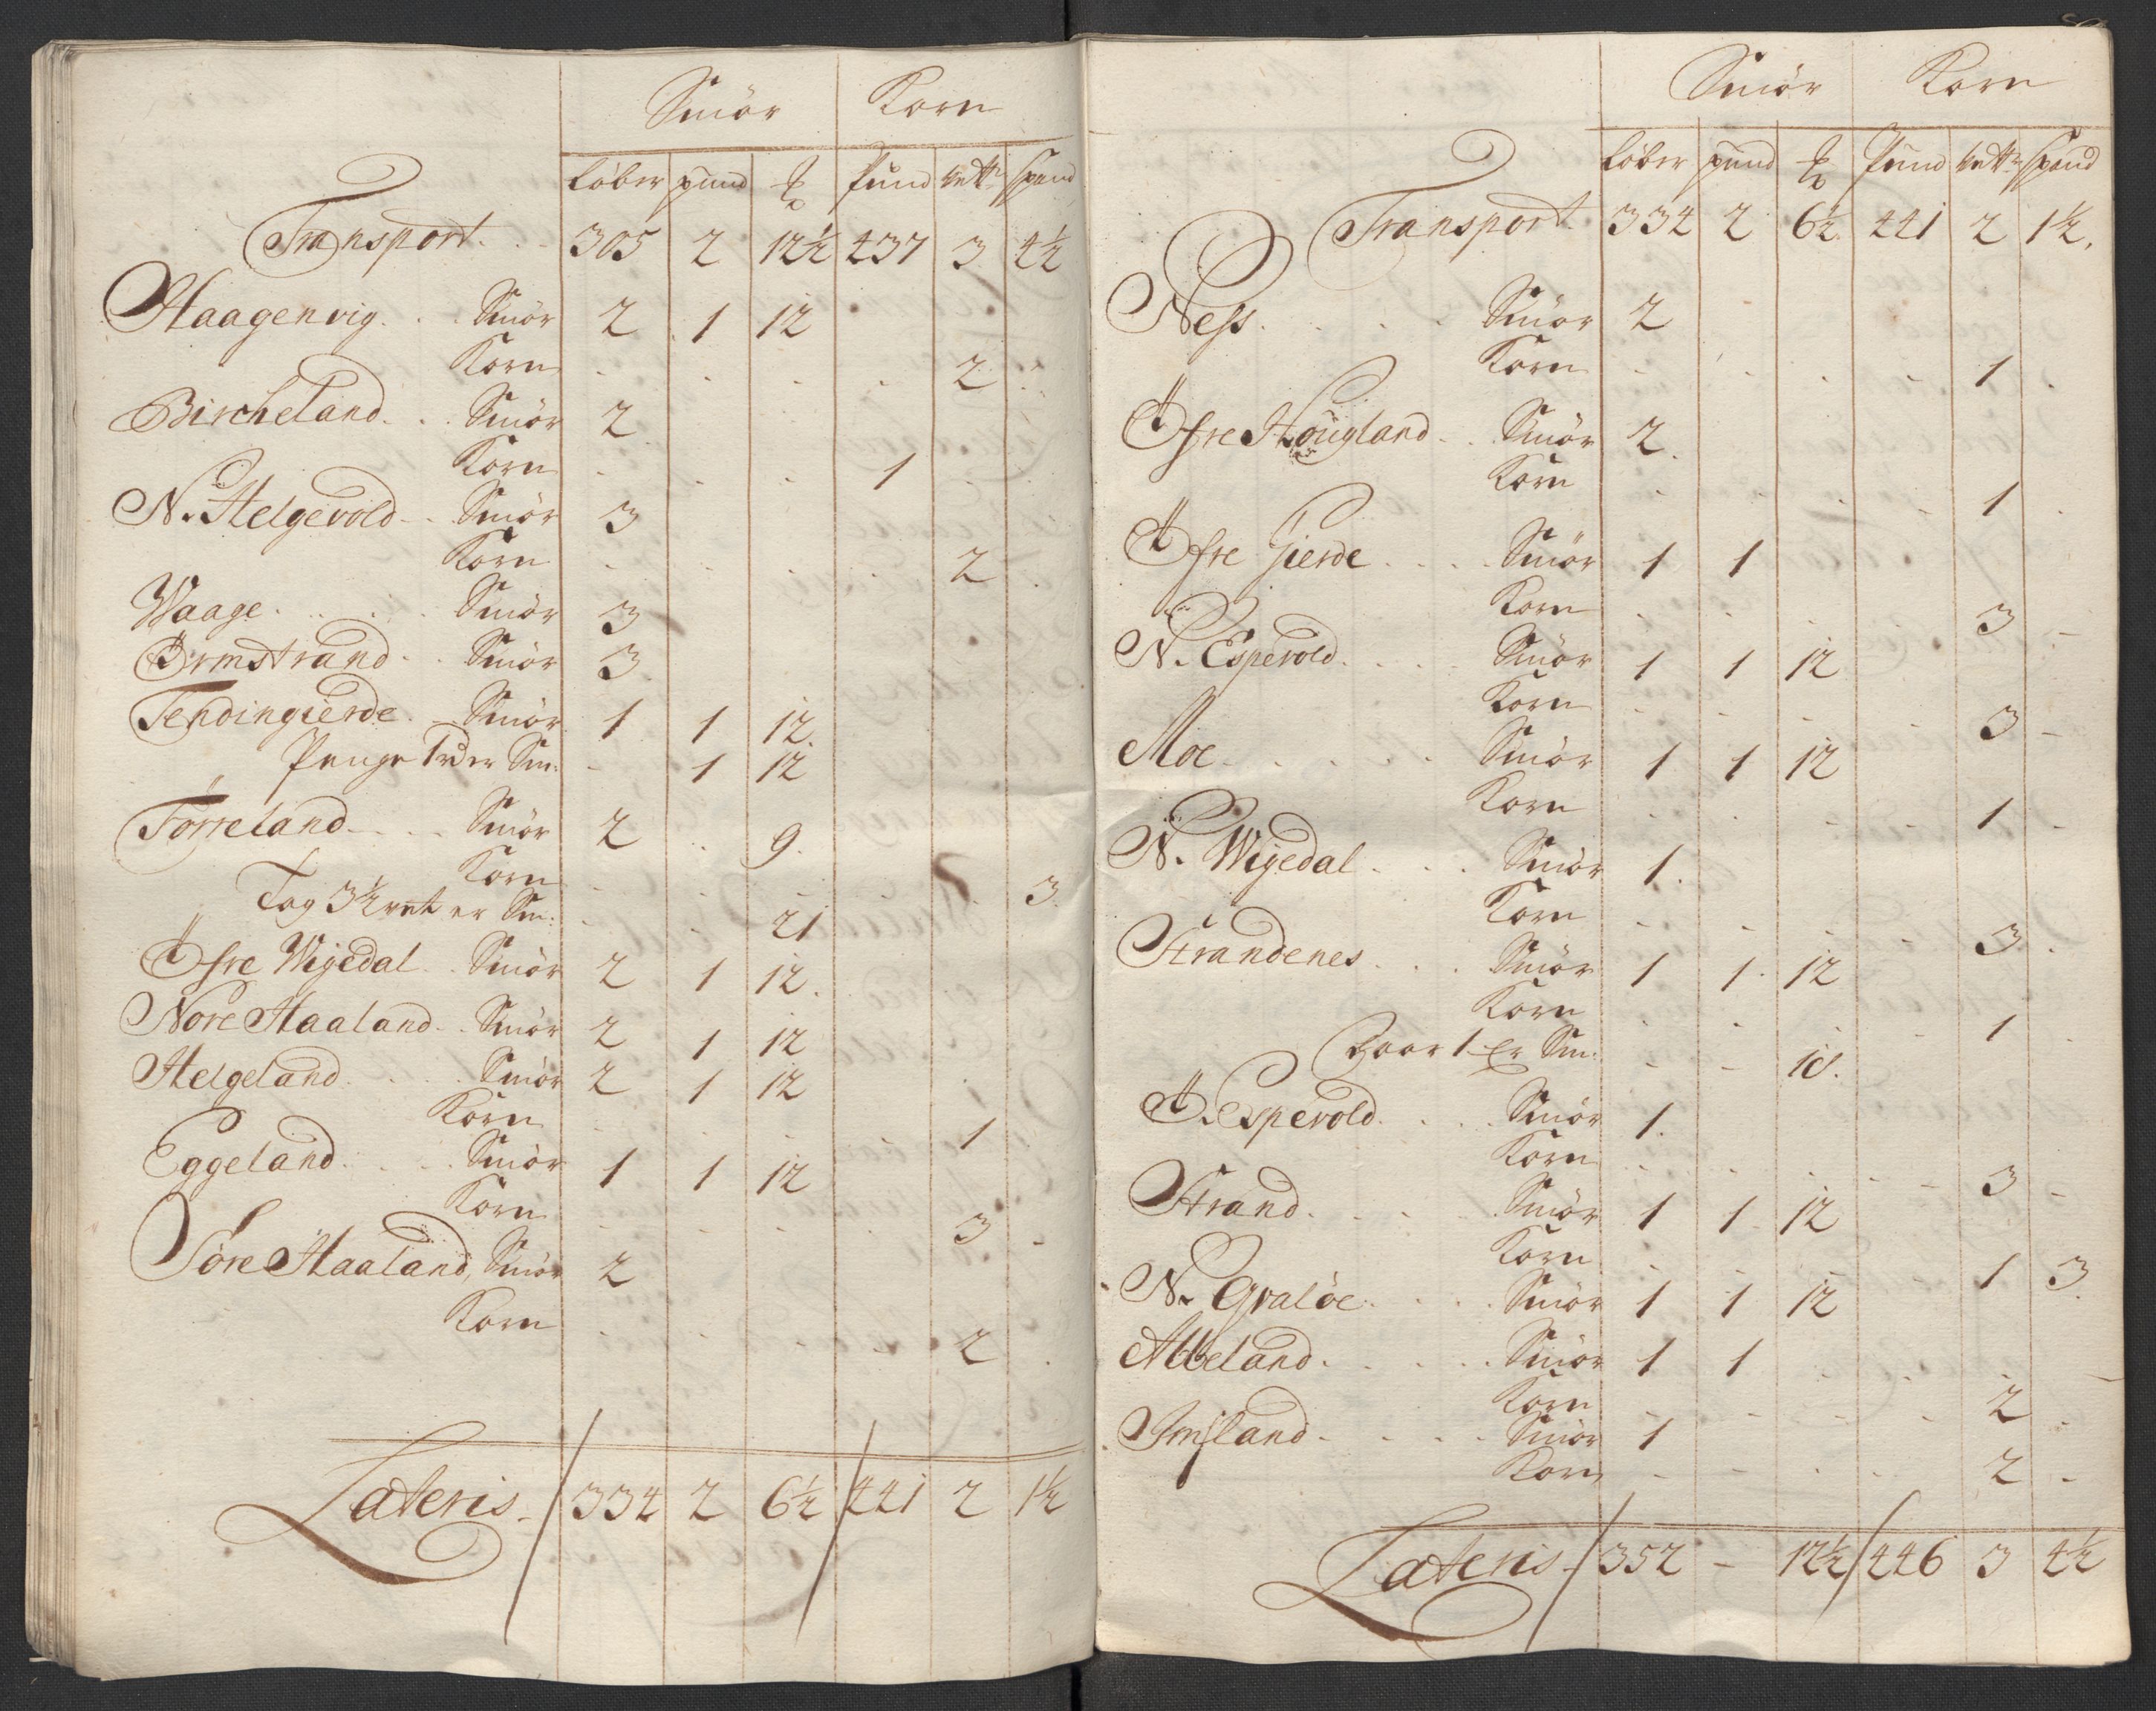 Smör Korn
Løber pund ℔ Pund Vett: Spand
Transport. . . 305 2 12½ 437 3 4½
Haagenvig. . . Smör 2 1 12
Korn . . . . 2 .
Bircheland. . . Smör 2
Korn . . . 1 . .
N. Helgevold . . Smör 3
Korn . . . . 2 .
Waage . . . . Smör 3
Ørmstrand . . Smör 3
Tendingierde . . Smör 1 1 12
Penge 1 rd er Sm: - 1 12
Törreland . . . Smör 2 . 9.
Korn . . . . . 3.
Tog 3½ er Sm: . . 21
Øfre Wigedal . . Smör 2 1 12.
Nore Haaland . . Smör 2 1 12
Helgeland . . . Smör 2 1 12
Korn . . . . 1
Eggeland . . . Smör 1 1 12
Korn . . . . 3 -
Söre Haaland, Smör 2
Korn . . . . 2 .
Lateris - 334 2 6½ 441 2 1½
Smör Korn
Løber pund ℔ Pund Vett: Spand
Transport 334 2 6½ 441 2 1½.
Ness . . . . Smör 2
Korn . . . . 1 .
Øfre Hougland . . Smör 2.
Korn . . . . 1 .
Øfre Gierde . . . Smör 1 1
Korn . . . . 3 -
N. Espevold . . . . Smör 1 1 12
Korn . . . . 3 -
Moe . . . . . Smör 1 1 12
Korn . . . . 1 -
N. Wigedal . . . Smör 1.
Korn . . . . 3 .
Strandenes . . . Smör 1 1 12
Korn . . . . 1 .
1 er Sm: - - 18.
Ø. Espevold . . . . Smör 1.
Korn . . . . 3 -
Strand . . . . Smör 1 1 12
Korn . . . . 1 3.
N. Qvaløe . . . . Smör 1 1 12
Abbeland . . . . . Smör 1 1
Korn . . . . 2 -
Imsland . . . . Smör 1
Korn - - . . 2 -
Lateris - 352 - 12½ 446 3 4½